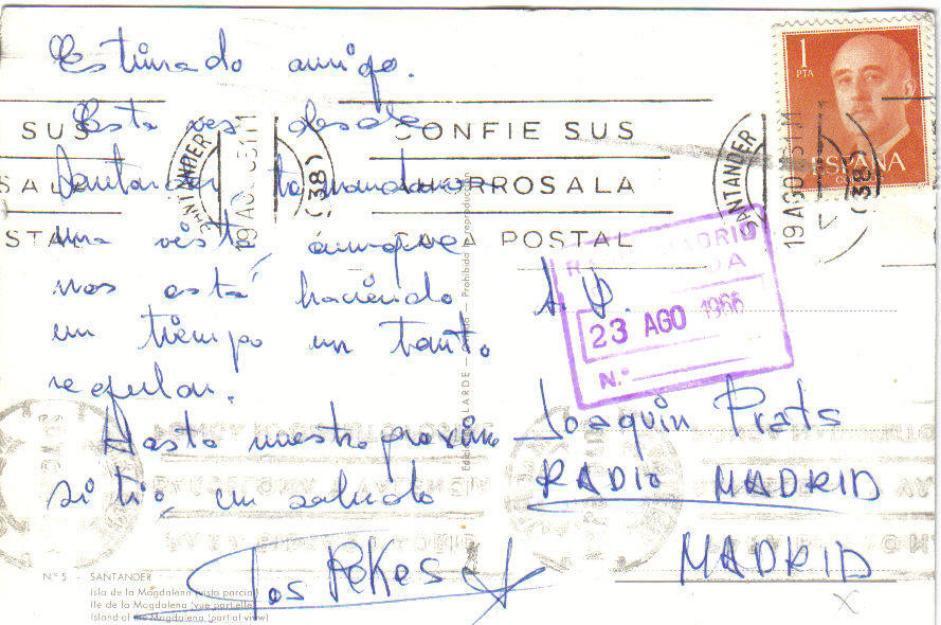 Estimado amigo.
Esta vez desde
Santander, tomandonos
una visita, aunque
nos está haciendo
un tiempo un tanto
regular.
Hasta nuestro proximo
sitio, un saludo
Los PeKes
D.
Joaquin Prats
RADIO MADRID
MADRID
1
PTA
ESPAÑA
CONFIE SUS
AHORROS A LA
CAJA POSTAL
SUS
S A LA
STAL
SANTANDER
19 AGO
(38)
SANTANDER
19 AGO
(38)
RADIO MADRID
23 AGO 1966
N.º
Prohibida la reproducción
Nº 5 - SANTANDER
Isla de la Magdalena (vista parcial)
Ile de la Magdalena (vue partielle)
Island of the Magdalena (partial view)